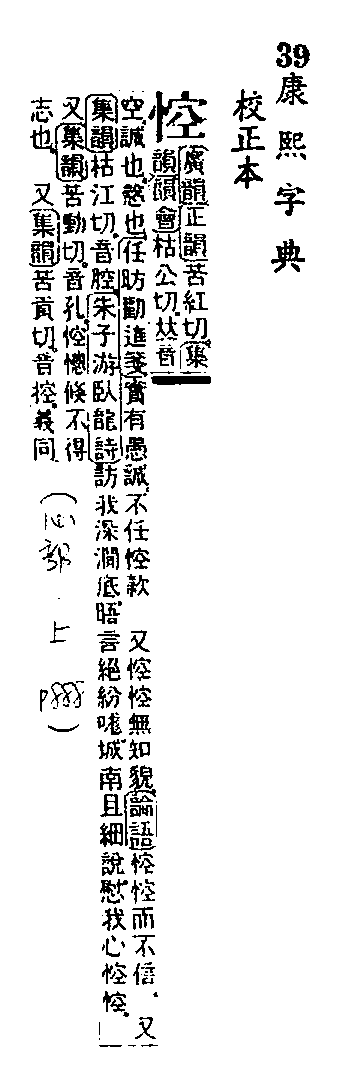 39康熙字典
校正本
悾
廣韻正韻苦紅切集
韻韻會枯公切𠀤音
空誠也慤也任昉勸進箋實有愚誠不任悾款 又悾悾無知貌論語悾悾而不信、又
集韻枯江切音腔朱子游臥龍詩訪我深澗底晤言絕紛哤城南且細說慰我心悾悾。
又集韻苦動切音孔悾憁倏不得
志也 又集韻苦貢切音控義同
(心部.上 p888)